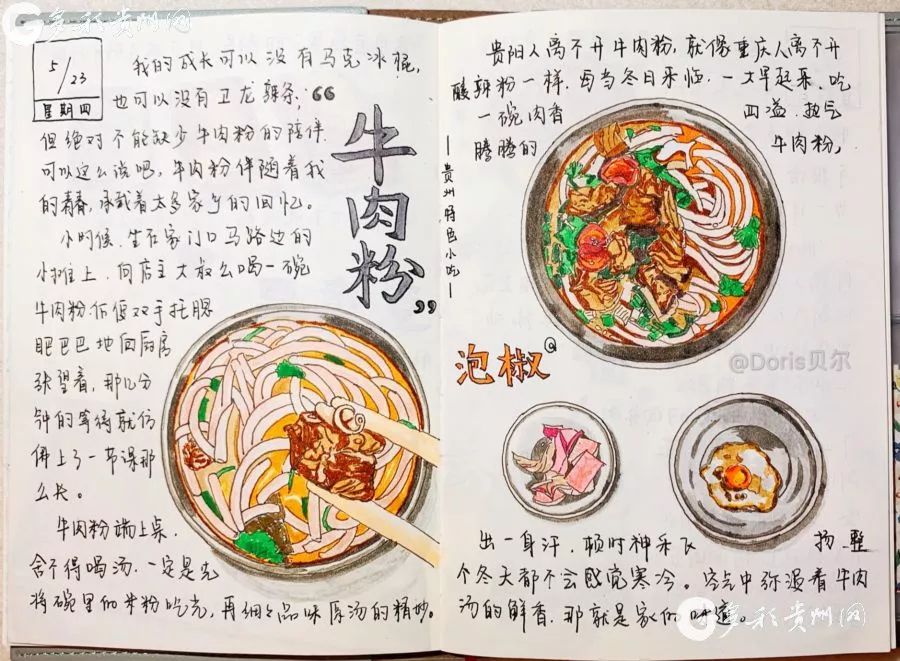 多彩贵州网
5/23
星期四
我的成长可以没有马克冰棍,
也可以没有卫龙辣条,
但绝对不能缺少牛肉粉的陪伴
可以这么说吧,牛肉粉伴随着我
的青春,承载着太多家乡的回忆。
小时候,坐在家门口马路边的
小摊上,向店主大叔么喝一碗
牛肉粉后便双手托腮
眼巴巴地向厨房
张望着,那几分
钟的等待就仿
佛上了一节课那
么长。
牛肉粉端上桌,
舍不得喝汤,一定是先
将碗里的米粉吃光,再细细品味原汤的精妙。
“牛肉粉”
—贵州特色小吃—
贵阳人离不开牛肉粉,就像重庆人离不开
酸辣粉一样,每当冬日来临,一大早起来,吃
一碗肉香四溢,热气
腾腾的牛肉粉,
泡椒
@Doris贝尔
出一身汗,顿时神采飞扬,整
个冬天都不会感觉寒冷。空气中弥漫着牛肉
汤的鲜香,那就是家的味道。
多彩贵州网